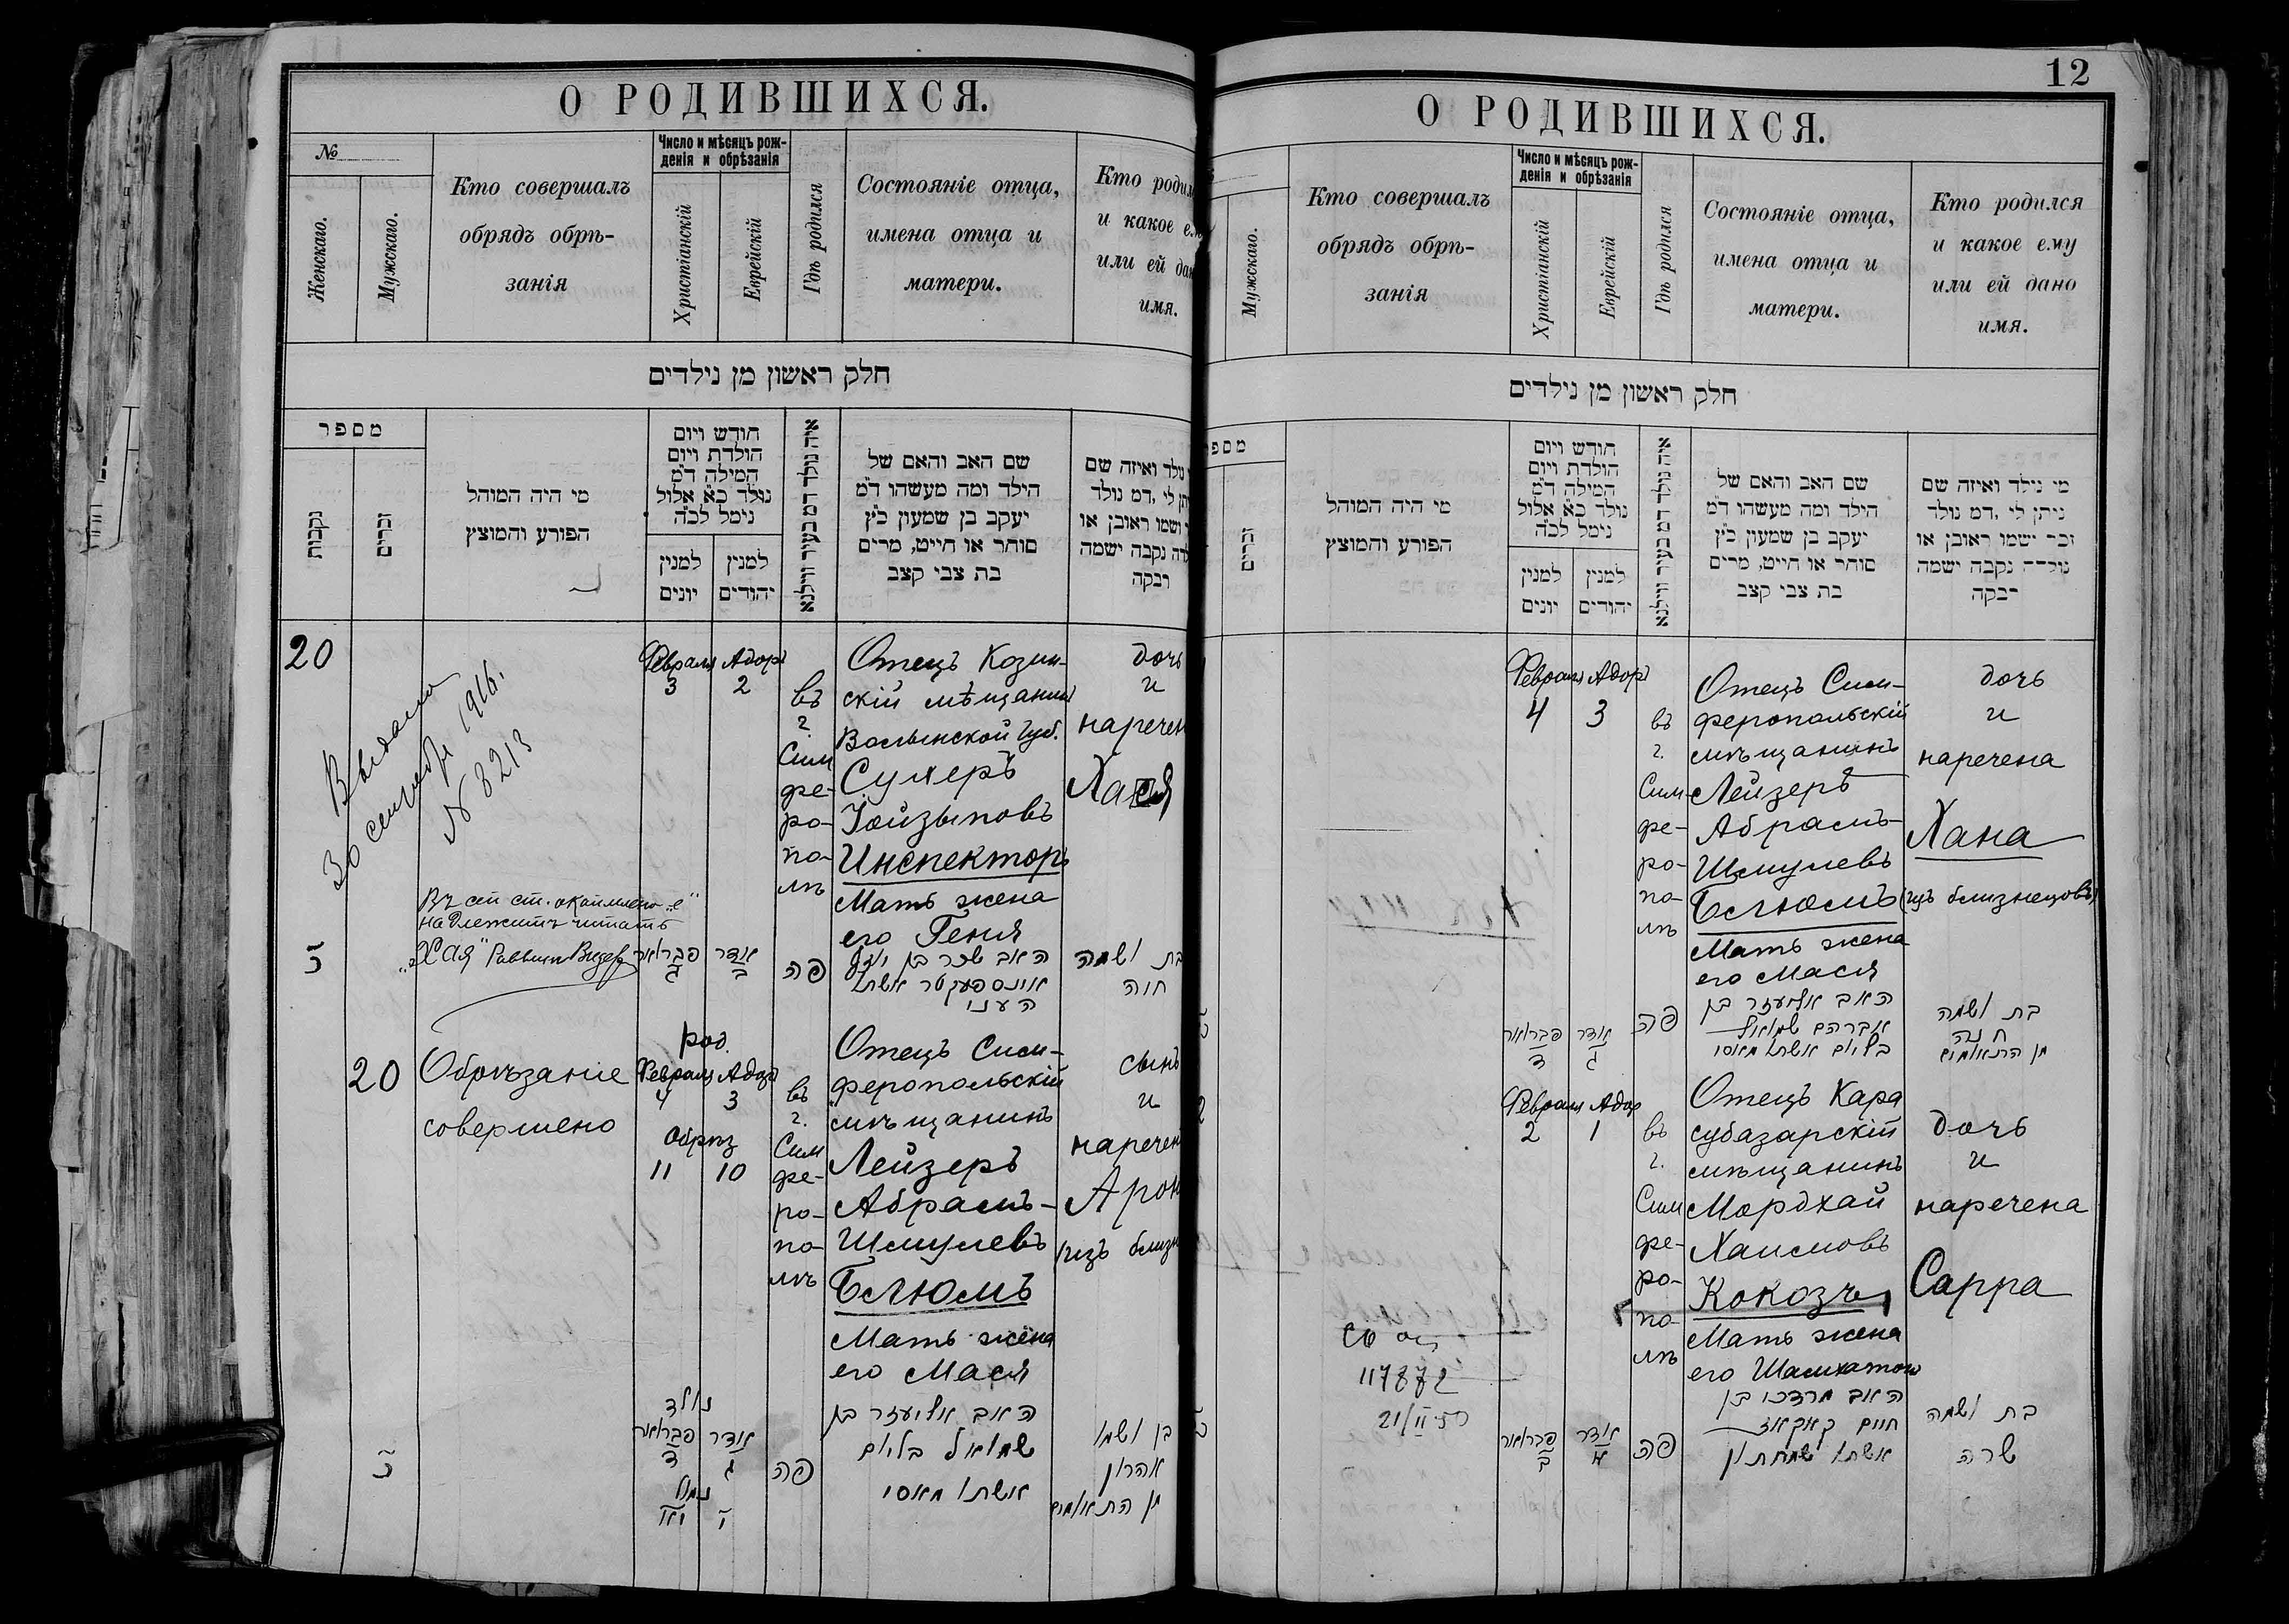 О РОДИВШИХСЯ.
№
Женскаго.
Мужскаго.
Кто совершалъ
обрядъ обрѣ-
занія
Число и мѣсяцъ рож-
денія и обрѣзанія
Христіанскій
Еврейскій
Гдѣ родился
Состояніе отца,
имена отца и
матери.
Кто родил
и какое ем
или ей дан
имя.
חלק ראשון מן נילדים
מספר
נקבות
זכרים
מי היה המוהל
הפורע והמוצץ
חודש ויום
הולדת ויום
המילה ד״מ
נולד כ״א אלול
נימל לכ״ה
למנין
יונים
למנין
יהודים
איה נולד דמ בעיר ווילנא
שם האב והאם של
הילד ומה מעשהו ד״מ
יעקב בן שמעון כ״ץ
סוחר או חייט, מרים
בת צבי קצב
נולד ואיזה שם
תן לי ,דמ נולד
ושמו ראובן או
דה נקבה ישמה
רבקה
20
Выдана
30 сентября 1916.
№ 8213
Въ ст. окаймлено „е"
надлежитъ читать
„Хая" Раввинъ
Февраля Адоръ
3 2
въ
г.
Сим
фе-
ро-
по-
лѣ
Отецъ Козин-
скій мѣщанинъ
Волынской Губ.
Сухеръ
Іойзыповъ
Инспекторъ
Мать жена
его Геня
дочь
и
наречен
Хая
פברואר
ג
אדר
ב
פה
האב שכר בן
אינספעקטר אשתו
העני
בת ושמה
חוה
20
Обрѣзаніе
совершено
род.
Февраля Адоръ
4 3
Обрѣз
11 10
въ
г.
Сим
фе-
ро-
по-
лѣ
Отецъ Сим-
феропольскій
мѣщанинъ
Лейзеръ
Абрамъ-
Шмулевъ
Беліомъ
Мать жена
его Мася
сынъ
и
наречен
Арон
(изъ близн
נולד
פברואר
ד
אדר
ג
נמול
י
פה
האב אליעזר בן
שמואל בליום
אשתו מאסי
בן ושמו
אהרון
מן התאומים
12
О РОДИВШИХСЯ.
Мужскаго.
Кто совершалъ
обрядъ обрѣ-
занія
Число и мѣсяцъ рож-
денія и обрѣзанія
Христіанскій
Еврейскій
Гдѣ родился
Состояніе отца,
имена отца и
матери.
Кто родился
и какое ему
или ей дано
имя.
חלק ראשון מן נילדים
מספ
זכרים
מי היה המוהל
הפורע והמוצץ
חודש ויום
הולדת ויום
המילה ד״מ
נולד כ״א אלול
נימל לכ״ה
למנין
יונים
למנין
יהודים
איה נולד דמ בעיר ווילנא
שם האב והאם של
הילד ומה מעשהו ד״מ
יעקב בן שמעון כ״ץ
סוחר או חייט, מרים
בת צבי קצב
מי נילד ואיזה שם
ניתן לי ,דמ נולד
זכר ישמו ראובן או
נולדה נקבה ישמה
רבקה
Февраля Адоръ
4 3
въ
г.
Сим-
фе-
ро-
по-
лѣ
Отецъ Сим-
феропольскій
мѣщанинъ
Лейзеръ
Абрамъ-
Шмулевъ
Беліомъ
Мать жена
его Мася
дочь
и
наречена
Хана
(изъ близнецовъ)
פברואר
ד
אדר
ג
פה
האב אליעזר בן
אברהם שמואל
בליום אשתו מאסי
בת ושמה
חנה
מן התאומים
Февраля Адор
2 1
въ
г.
Сим
фе-
ро-
по-
лѣ
Отецъ Кара
субазарскій
мѣщанинъ
Мордхай
Хаимовъ
Кокозъ
Мать жена
его Шамхатонъ
дочь
и
наречена
Сарра
117872
21/II-50
פברואר
ב
אדר
א
פה
האב מרדכי בן
חיים קאקאז
אשתו שמחתון
בת ושמה
שרה